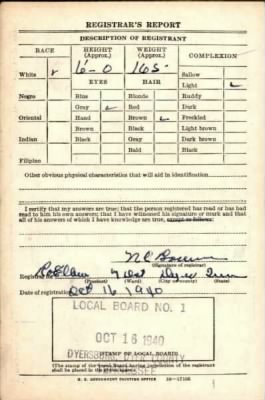 REGISTRAR'S REPORT
DESCRIPTION OF REGISTRANT
RACE HEIGHT (Approx.) WEIGHT (Approx.) COMPLEXION
White ✓ 6-0 165 Sallow
EYES HAIR Light ✓
Negro Blue Blonde Ruddy
Gray ✓ Red Dark
Oriental Hazel Brown ✓ Freckled
Brown Black Light brown
Indian Black Gray Dark brown
Bald Black
Filipino
Other obvious physical characteristics that will aid in identification
I certify that my answers are true; that the person registered has read or has had
read to him his own answers; that I have witnessed his signature or mark and that
all of his answers of which I have knowledge are true, except as follows:
(Signature of registrar)
Registrar for
(Precinct) (Ward) (City or county) (State)
Date of registration Oct 16 1940
LOCAL BOARD NO. 1
OCT 16 1940
DYERSBURG, DYER COUNTY
TENNESSEE
(STAMP OF LOCAL BOARD)
(The stamp of the Local Board having jurisdiction of the registrant
shall be placed in the above space.)
U. S. GOVERNMENT PRINTING OFFICE 16-17105